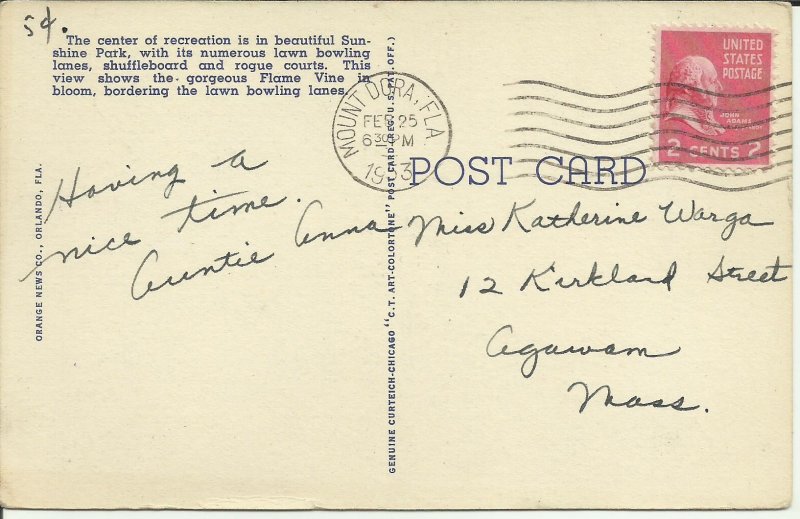 5¢.
The center of recreation is in beautiful Sun-
shine Park, with its numerous lawn bowling
lanes, shuffleboard and rogue courts. This
view shows the gorgeous Flame Vine in
bloom, bordering the lawn bowling lanes.
Having a
nice time.
Auntie Anna
ORANGE NEWS CO., ORLANDO, FLA.
GENUINE CURTEICH-CHICAGO "C.T. ART-COLORTONE" POST CARD (REG. U.S. PAT. OFF.)
MOUNT DORA, FLA.
FEB 25
630 PM
1953
POST CARD
UNITED
STATES
POSTAGE
JOHN
ADAMS
2 CENTS 2
Miss Katherine Warga
12 Kirkland Street
Agawam
Mass.